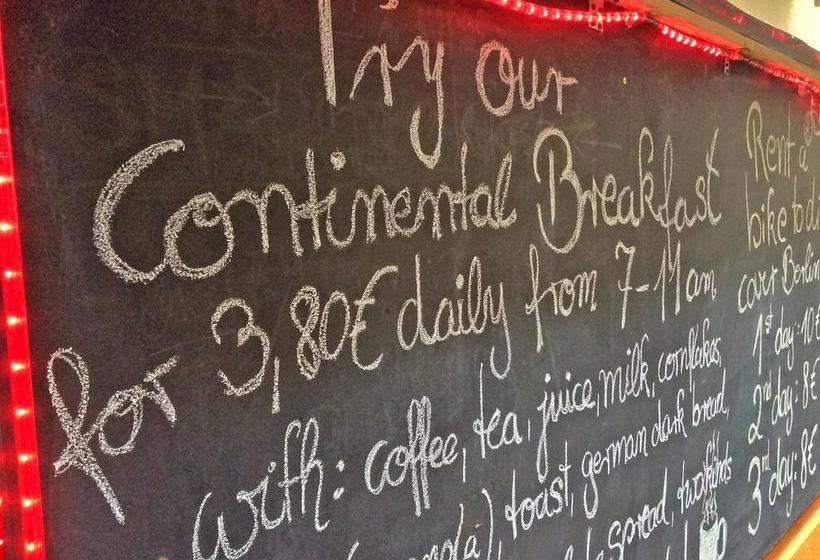 Try our
Continental Breakfast
for 3,80€ daily from 7-11am,
with: coffee, tea, juice, milk, cornflakes,
toast, german dark bread,
Spread,
Rent a
bike to
Berlin
1st day: 10€
2nd day: 8€
3rd day: 8€